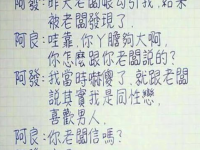 阿發:昨天老闆娘勾引我,結果
被老闆發現了.
阿良:哇靠,你丫膽夠大啊,
你怎麼跟你老闆說的?
阿發:我當時嚇傻了,就跟老闆
說其實我是同性戀,
喜歡男人.
阿良:你老闆信嗎?